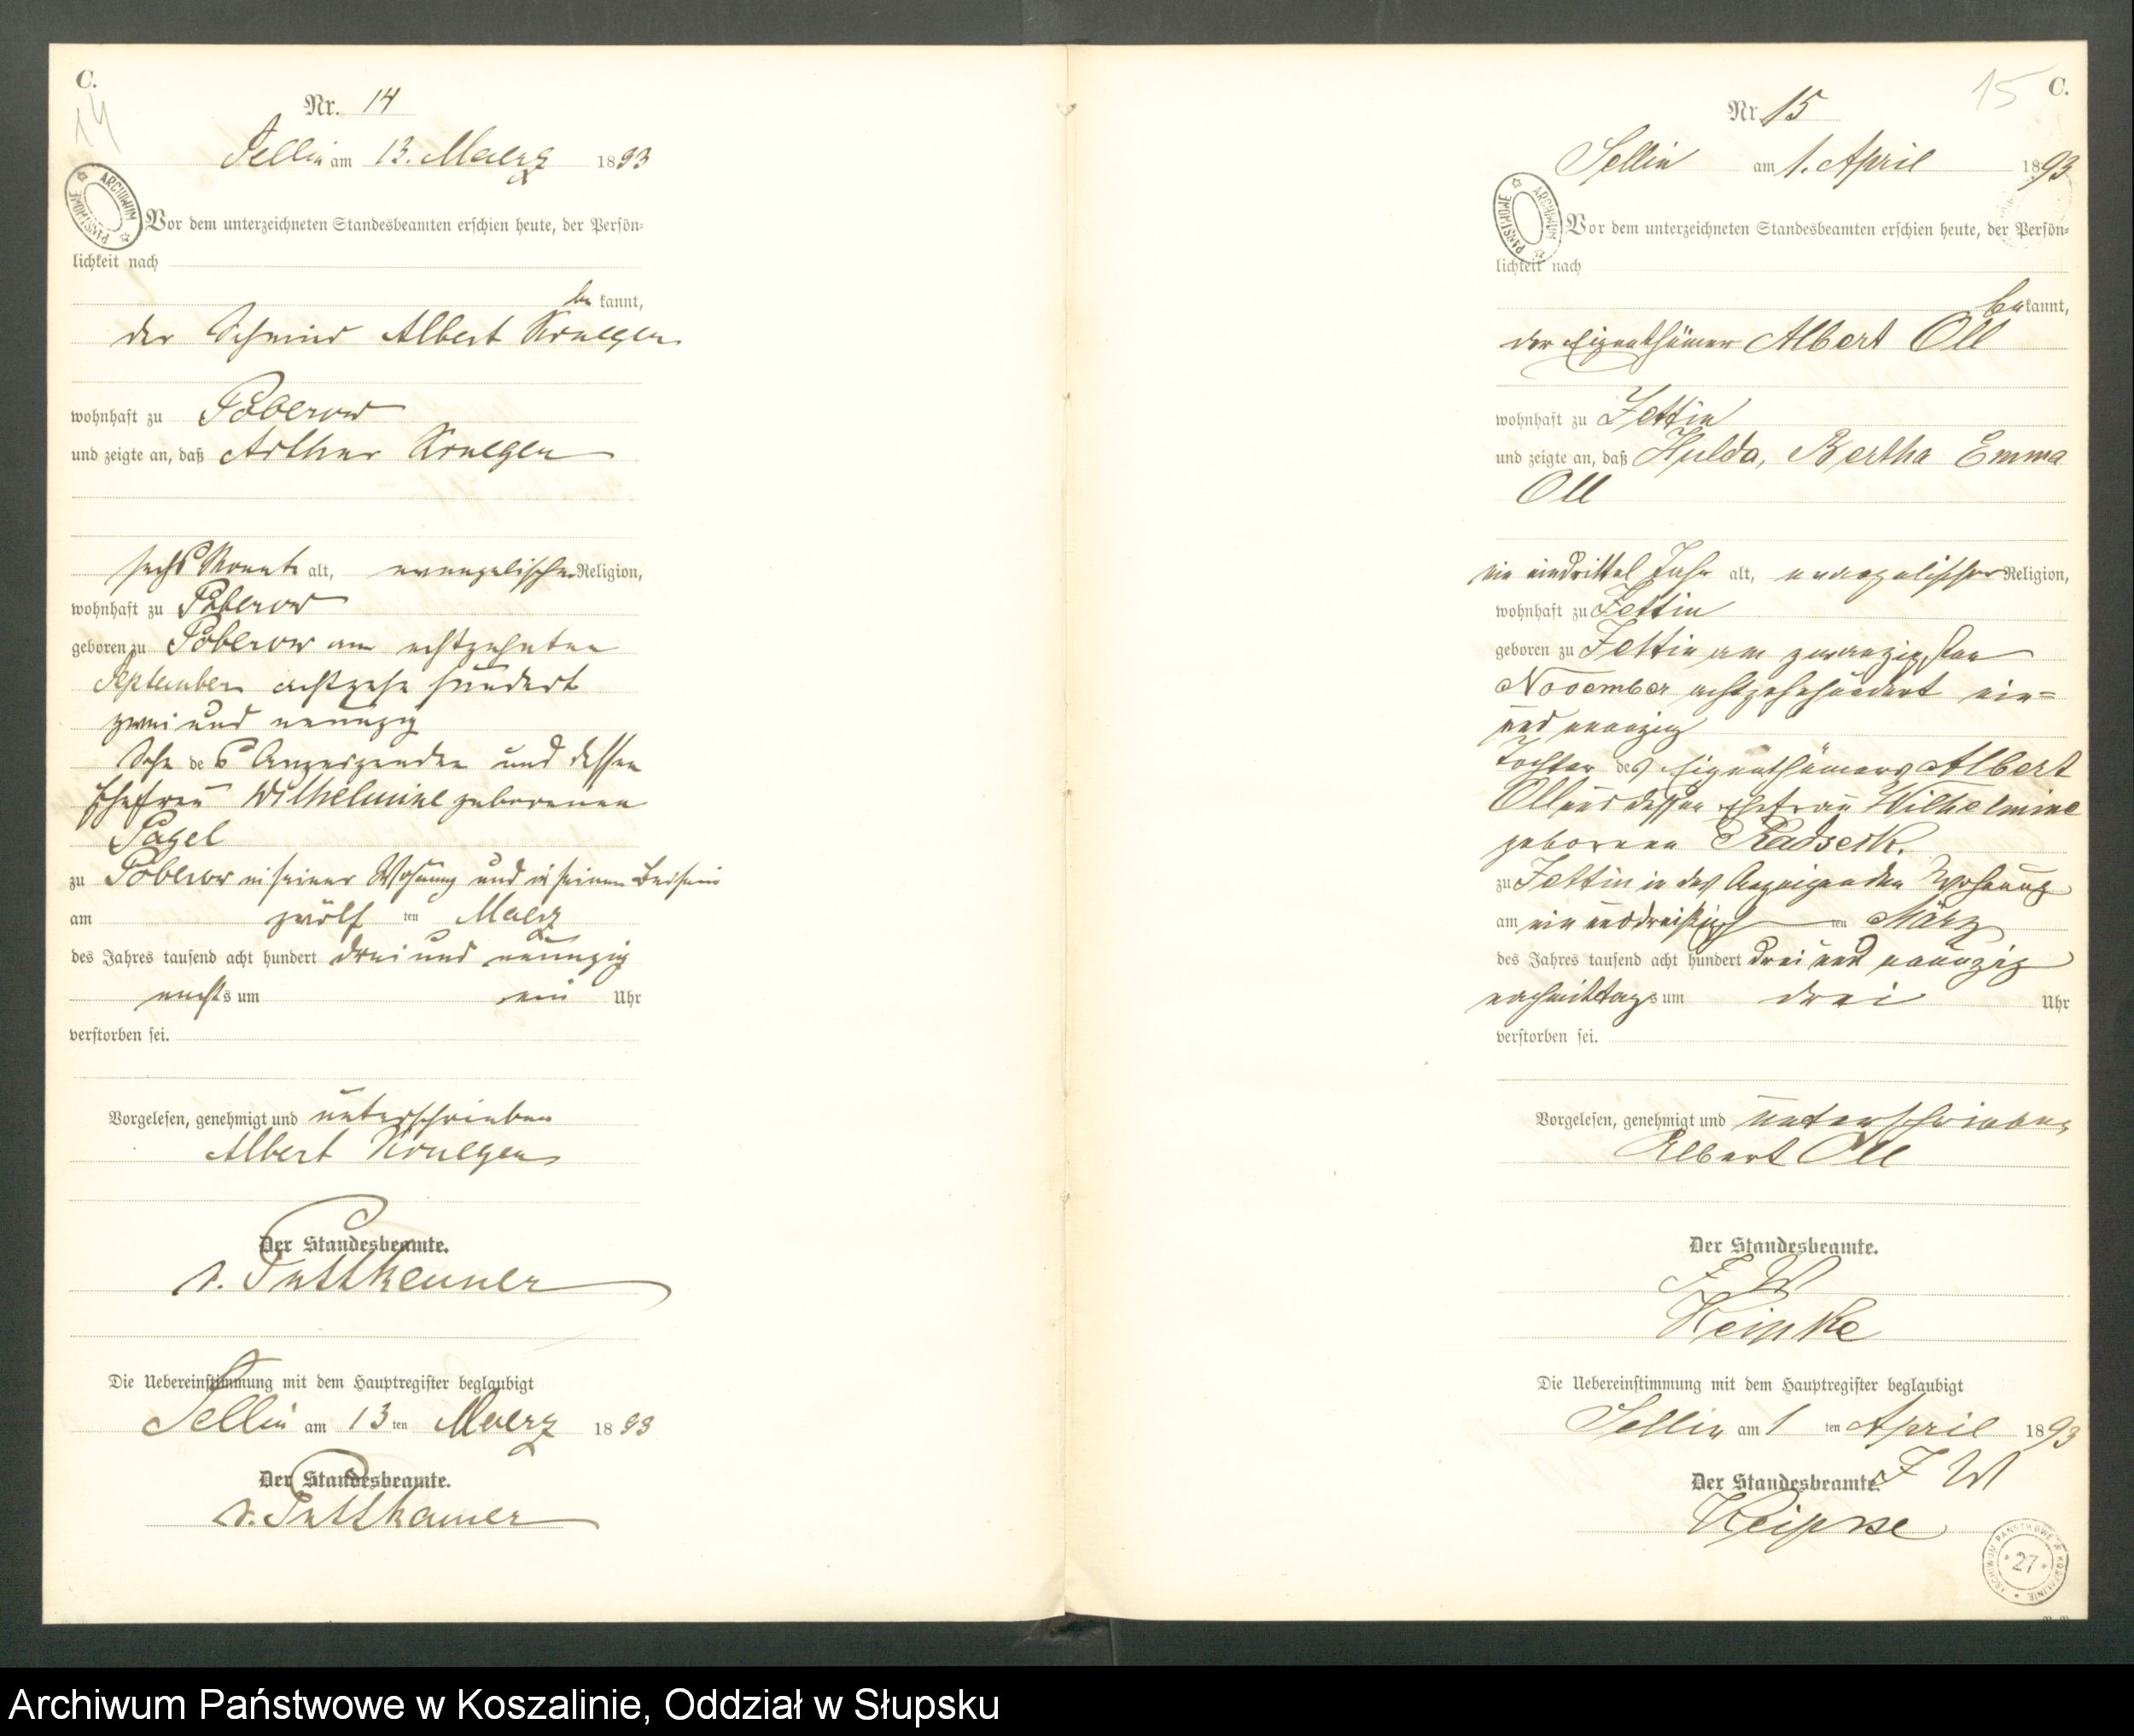 C.
14
Nr. 14
Sellin am 13. Maerz 1893
ARCHIWUM PAŃSTWOWE
Vor dem unterzeichneten Standesbeamten erschien heute, der Persön-
lichkeit nach
be kannt,
der Schmied Albert Krueger
wohnhaft zu Poberow
und zeigte an, daß Arthur Krueger
sechs Monate alt, evangelischer Religion,
wohnhaft zu Poberow
geboren zu Poberow am achtzehnten
September achtzehn hundert
zwei und neunzig
Sohn des Anzeigenden und dessen
Ehefrau Wilhelmine geborenen
Pagel
zu Poberow in seiner Wohnung und in seinem Beisein
am zwölf ten Maerz
des Jahres tausend acht hundert drei und neunzig
nachts um ein Uhr
verstorben sei.
Vorgelesen, genehmigt und unterschrieben
Albert Krueger
Der Standesbeamte.
v. Puttkamer
Die Uebereinstimmung mit dem Hauptregister beglaubigt
Sellin am 13 ten Maerz 1893
Der Standesbeamte.
v. Puttkamer
15 C.
Nr 15
Sellin am 1. April 1893
ARCHIWUM PAŃSTWOWE
Vor dem unterzeichneten Standesbeamten erschien heute, der Persön-
lichkeit nach
be kannt,
der Eigenthümer Albert Oll
wohnhaft zu Zettin
und zeigte an, daß Hulda, Bertha Emma
Oll
ein eindrittel Jahr alt, evangelischer Religion,
wohnhaft zu Zettin
geboren zu Zettin am zwanzigsten
November achtzehnhundert ein=
und neunzig
Tochter des Eigenthümers Albert
Oll und dessen Ehefrau Wilhelmine
geborenen
zu Zettin in des Anzeigenden Wohnung
am ein und dreißigs ten März
des Jahres tausend acht hundert drei und neunzig
nachmittags um drei Uhr
verstorben sei.
Vorgelesen, genehmigt und unterschrieben
Albert Oll
Der Standesbeamte.
F W
Die Uebereinstimmung mit dem Hauptregister beglaubigt
Sellin am 1 ten April 1893
Der Standesbeamte. F W
ARCHIWUM PAŃSTWOWE W KOSZALINIE
* 27 *
Archiwum Państwowe w Koszalinie, Oddział w Słupsku